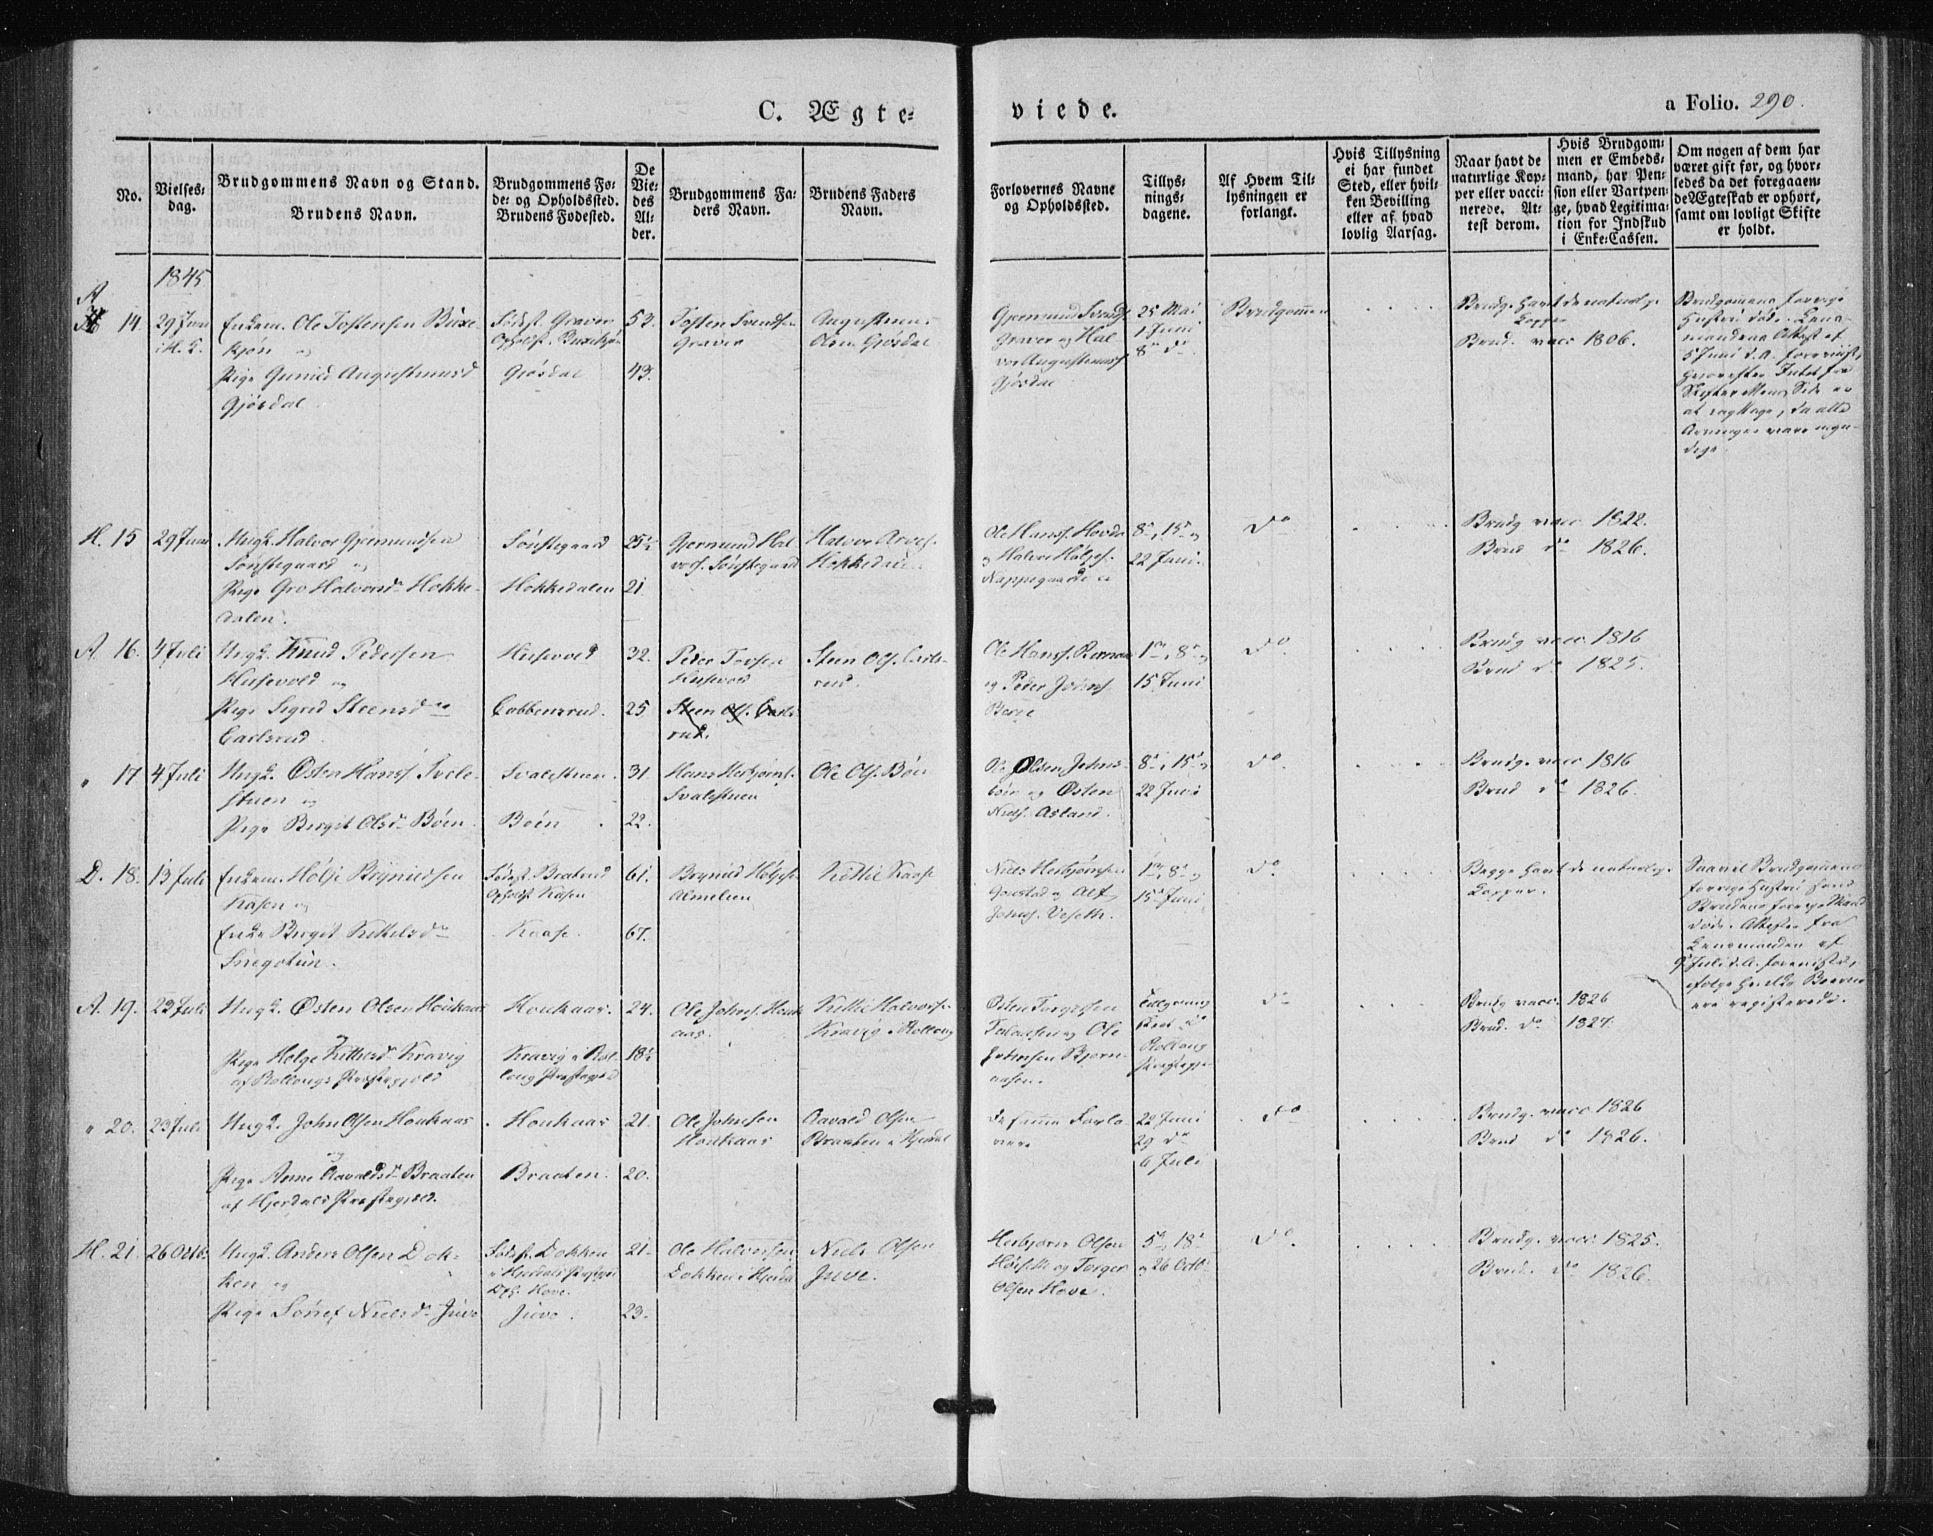 C. Ægte=
viede.
a Folio. 290.
No.
Vielses=
dag.
Brudgommens Navn og Stand.
Brudens Navn.
Brudgommens Fø=
de= og Opholdssted.
Brudens Fødested.
De
Vie=
des
Al=
der.
Brudgommens Fa=
ders Navn.
Brudens Faders
Navn.
Forlovernes Navne
og Opholdssted.
Tillys=
nings=
dagene.
Af Hvem Til=
lysningen er
forlangt.
Hvis Tillysning
ei har fundet
Sted, eller hvil=
ken Bevilling
eller af hvad
lovlig Aarsag.
Naar havt de
naturlige Kop=
per eller vacci=
nerede. At=
test derom.
Hvis Brudgom=
men er Embeds=
mand, har Pen=
sion eller Vartpen=
ge, hvad Legitima=
tion for Indskud
i Enke=Cassen.
Om nogen af dem har
været gift før, og hvor=
ledes da det foregaaen=
de Ægteskab er ophørt,
samt om lovligt Skifte
er holdt.
1845
A
14.
29 Juni
i H. K.
Enkem. Ole Tostensen Buxe-
kjøn og
Pige Gunild Augustinusd
Gjøsdal
Fødst. Graver
Opholdst. Buxekjøn
Gjøsdal
53.
43.
Tosten Svends.
Graver
Augustinus
Olsen Gjøsdal
Gjermund Svends.
Graver og Hal
vor Augustinuss.
Gjøsdal
25 Mai
1 Juni
8de do
Brudgommen
Brudg. havt de naturlige
Kopper
Brud. vacc 1806.
Brudgommens forrige
Hustru død. Lens-
mandens Attest af
5 Juni d. A. foreviist,
hvorefter Intet fra
Skifte Væsenets Side er
at iagttage, da alle
Arvinger vare myn-
dige.
H. 15
29 Juni
Ungk. Halvor Gjermundsen
Sønstegaard og
Pige Gro Halvorsd. Hokke-
dalen.
Sønstegaard
Hokkedalen
25½
21
Gjermund Hal
vors. Sønstegaard
Halvor Arves.
Hokkedalen
Ole Hanss. Hovda
og Halvor Høljes.
Nappegaarden
8de, 15de og
22 Juni.
do
Brudg vacc. 1822.
Brud do 1826.
A. 16.
4 Juli
Ungk. Knud Pedersen
Husevold og
Pige Sigrid Steensdr
Carlsrud
Husevold
Cobbensrud.
32.
25
Peder Torsen
Husevold
Steen Ols. Carls-
rud.
Steen Ols. Carls-
rud.
Ole Hanss.
og Peder Johns.
Berge
1ste, 8de og
15 Juni
do
Brudg vacc. 1816
Brud do 1825.
" 17
4 Juli
Ungk. Østen Hanss. Svale-
stuen og
Pige Birgit Olsd. Bøen
Svalestuen
Bøen
31.
22.
Hans Herbjørns.
Svalestuen
Ole Ols. Bøen
Ole Olsen Johns-
bøen og Østen
Niels. Aasland.
8de, 15de og
22 Juni
do
Brudg. vacc 1816
Brud do 1826.
D. 18.
13 Juli
Enkem. Hølje Brynildsen
Kasen og
Enke Birgit Kittelsdr
Snegotun.
Fødst. Bratrud
Opholdst. Kasen
Kaase.
61.
67.
Brynild Høljes.
Almelien
Kittil Kaase
Niels Herbjørnsen
Gonstad og Alf
Johns. Veseth.
1ste, 8de og
15 Juni
do
Begge havt de naturlige
Kopper.
Saavel Brudgommens
forrige Hustru som
Brudens forrige Mand
døde. Attester fra
Lensmanden af
9 Juli d. A. foreviist,
ifølge hvilke Boerne
ere registerede.
A. 19.
23 Juli
Ungk. Østen Olsen Houkaas
og
Pige Helge Kittilsd Kravig
af Rollougs Præstegjeld
Houkaas.
Kravig i Rol-
loug Præstegjeld
24.
18½
Ole Johns. Houk
aas.
Kittil Halvorsen
Kravig i Rolloug
Østen Torgersen
og Ole
Johnsen Bjørn-
aasen.
Tillysning
skeet i
Rolloug
Præstegje-
do
Brudg vacc. 1826
Brud. do 1827.
" 20.
23 Juli
Ungk. John Olsen Houkaas
og
Pige Anne Aavaldsd. Braaten
af Hjerdals Præstegjeld.
Houkaas
Braaten.
21.
20.
Ole Johnsen
Houkaas
Aavald Olsen
Braaten i Hjerdal
De samme Forlo
vere
22 Juni
29 do
6 Juli
do
Brudg. vacc 1826
Brud do 1826.
H. 21.
26 Octb.
Ungk. Anders Olsen Dok-
ken og
Pige Sønnef Nielsd. Juve
Fødst. Dokken
i Hjerdals Præstegjeld
Oph. Hove.
Juve.
21
23.
Ole Halvorsen
Dokken i Hjerdal
Niels Olsen
Juve.
Herbjørn Olsen
Høiseth og Torger
Olsen Hove.
5te, 18de
og 26 Octb.
do
Brudg. vacc. 1825.
Brud. do 1826.